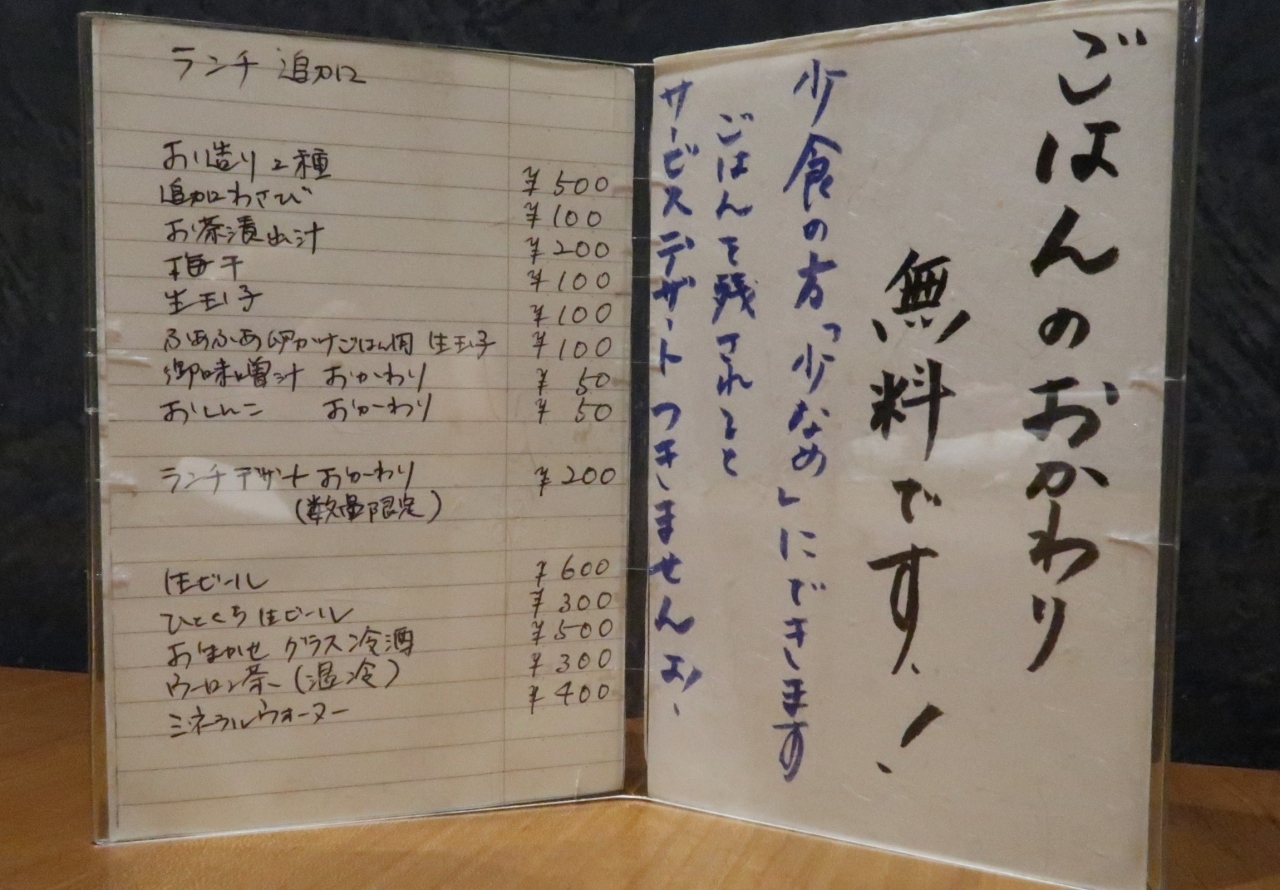 ランチ 追加
お造り2種 ¥500
追加わさび ¥100
お茶漬出汁 ¥200
梅干 ¥100
生玉子 ¥100
ふあふあ卵かけごはん用 生玉子 ¥100
御味噌汁 おかわり ¥50
おしんこ おかーわり ¥50
ランチデザート おかーわり ¥200
(数量限定)
生ビール ¥600
ひとくち生ビール ¥300
おまかせ グラス冷酒 ¥500
ウーロン茶 (温冷) ¥300
ミネラルウォーター ¥400
ごはんのおかわり
無料です!
少食の方「少なめ」にできます
ごはんを残されると
サービスデザートつきませんよ!